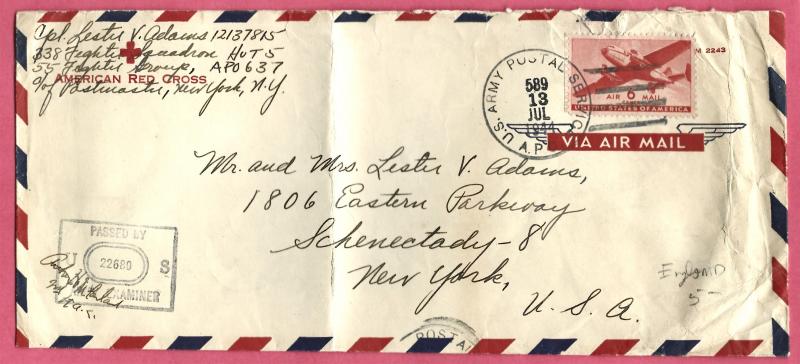 Cpl. Lester V. Adams 12137815
338 Fighter Squadron HUT 5
55 Fighter Group, APO 637
AMERICAN RED CROSS
c/o Postmaster, New York, N.Y.
U.S. ARMY POSTAL SERVICE
589
13
JUL
1944
A.P.
M 2243
AIR 6 MAIL
UNITED STATES OF AMERICA
VIA AIR MAIL
Mr. and Mrs. Lester V. Adams,
1806 Eastern Parkway
Schenectady-8
New York,
U. S. A.
PASSED BY
U S
22680
EXAMINER
England
5-
POSTAL